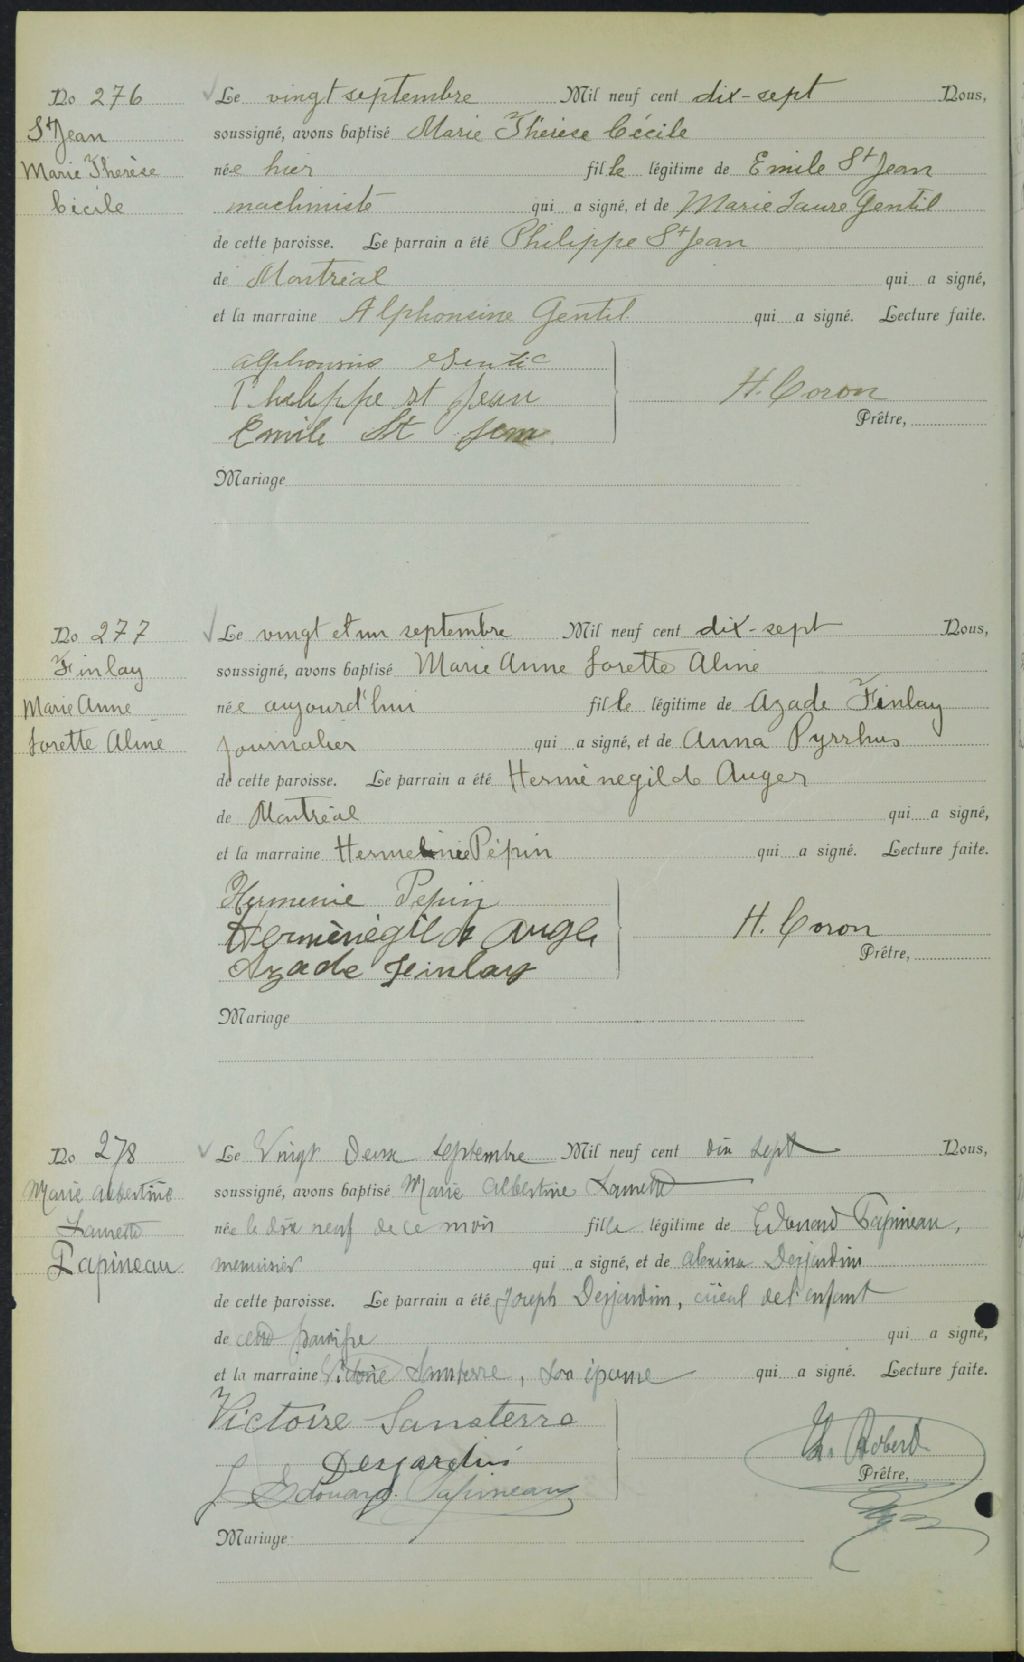 No 276
St Jean
Marie Thérèse
Cécile
Le vingt septembre Mil neuf cent dix-sept Nous,
soussigné, avons baptisé Marie Thérèse Cécile
née hier fille légitime de Emile St Jean
machiniste qui a signé, et de Marie Laure Gentil
de cette paroisse. Le parrain a été Philippe St Jean
de Montréal qui a signé,
et la marraine Alphonsine Gentil qui a signé. Lecture faite.
Philippe st Jean
Emile St Jean
H. Coron
Prêtre,
Mariage
No 277
Finlay
Marie Anne
Lorette Aline
Le vingt et un septembre Mil neuf cent dix-sept Nous,
soussigné, avons baptisé Marie Anne Lorette Aline
née aujourd'hui fille légitime de Azade Finlay
journalier qui a signé, et de Anna Pyrrhus
de cette paroisse. Le parrain a été Herménegilde Auger
de Montréal qui a signé,
et la marraine Pépin qui a signé. Lecture faite.
Hermenie Pepin
Herménégilde Auger
Azade Feinlay
H. Coron
Prêtre,
Mariage
No 278
Marie Albertine
Laurette
Papineau
Le Vingt Deux septembre Mil neuf cent dix sept Nous,
soussigné, avons baptisé Marie Albertine Laurette
née le dix neuf de ce mois fille légitime de Edouard Papineau,
menuisier qui a signé, et de Alexina Desjardins
de cette paroisse. Le parrain a été Joseph Desjardins, aïeul de l'enfant
de cette paroisse qui a signé,
et la marraine Victoire Sansterre, son épouse qui a signé. Lecture faite.
Victoire Sansterre
Desjardins
J. Edouard Papineau
Robert
Prêtre,
Mariage